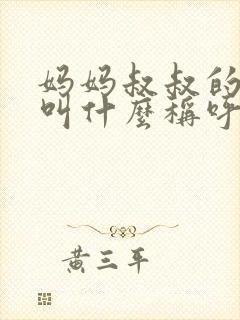 妈妈叔叔的
叫什麼稱呼
黄三平